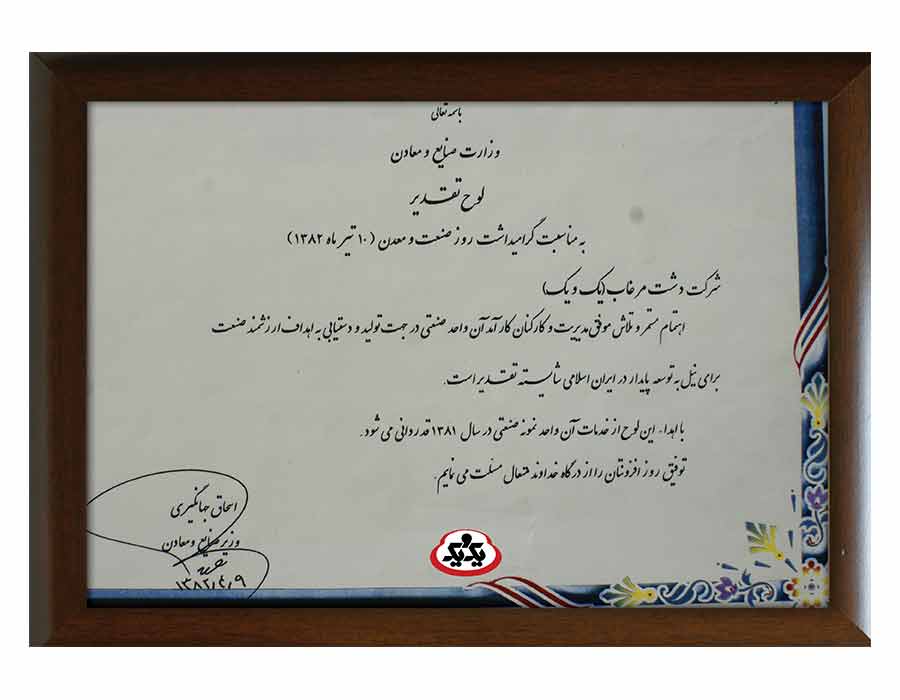 باسمه تعالی
وزارت صنایع و معادن
لوح تقدیر
به مناسبت گرامیداشت روز صنعت و معدن (۱۰ تیر ماه ۱۳۸۲)
شرکت دشت مرغاب (یک و یک)
اهتمام مستمر و تلاش موفق مدیریت و کارکنان کارآمد آن واحد صنعتی در جهت تولید و دستیابی به اهداف ارزشمند صنعت
برای نیل به توسعه پایدار در ایران اسلامی شایسته تقدیر است.
با اهداء این لوح از خدمات آن واحد نمونه صنعتی در سال ۱۳۸۱ قدردانی می شود.
توفیق روز افزونتان را از درگاه خداوند متعال مسئلت می نمایم.
اسحاق جهانگیری
وزیر صنایع و معادن
۱۳۸۲/۴/۹
یک‌و‌یک